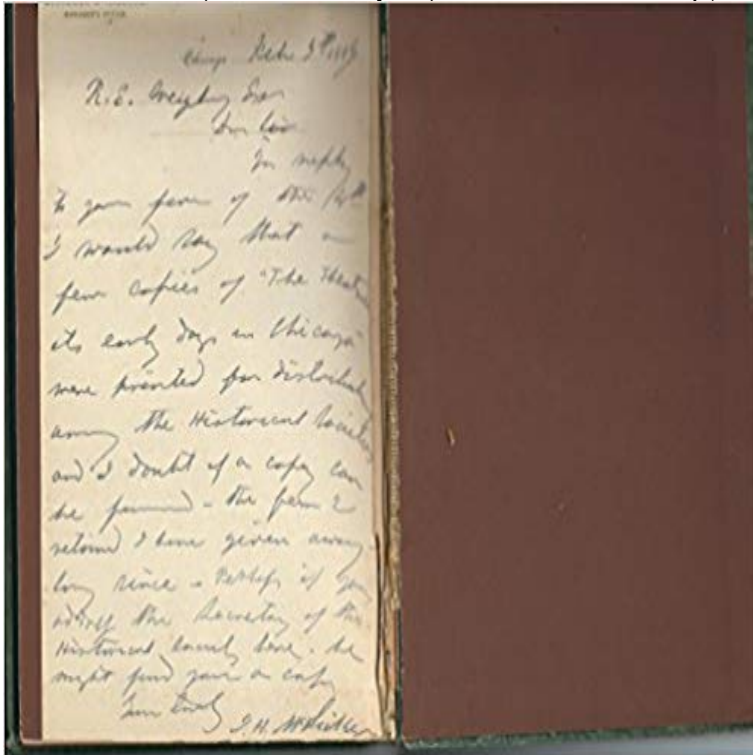 Chicago Feby 9th 1889
R. E.
Dear Sir
In reply
to your favor of the
I would say that a
few copies of "The Theatre
its early days in Chicago"
were printed for distribution
among the Historical Societies
and I doubt if a copy can
be found - the few I
retained I have given away
long since - Perhaps if you
address the Secretary of the
Historical Society here - he
might find you a copy
Yours truly
J. H. McVicker